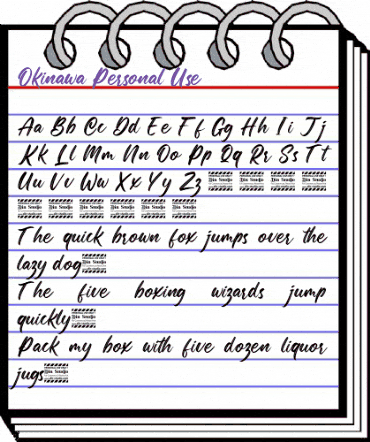 Okinawa Personal Use
Aa Bb Cc Dd Ee Ff Gg Hh Ii Jj
Kk Ll Mm Nn Oo Pp Qq Rr Ss Tt
Uu Vv Ww Xx Yy Zz
The quick brown fox jumps over the
lazy dog
The five boxing wizards jump
quickly
Pack my box with five dozen liquor
jugs